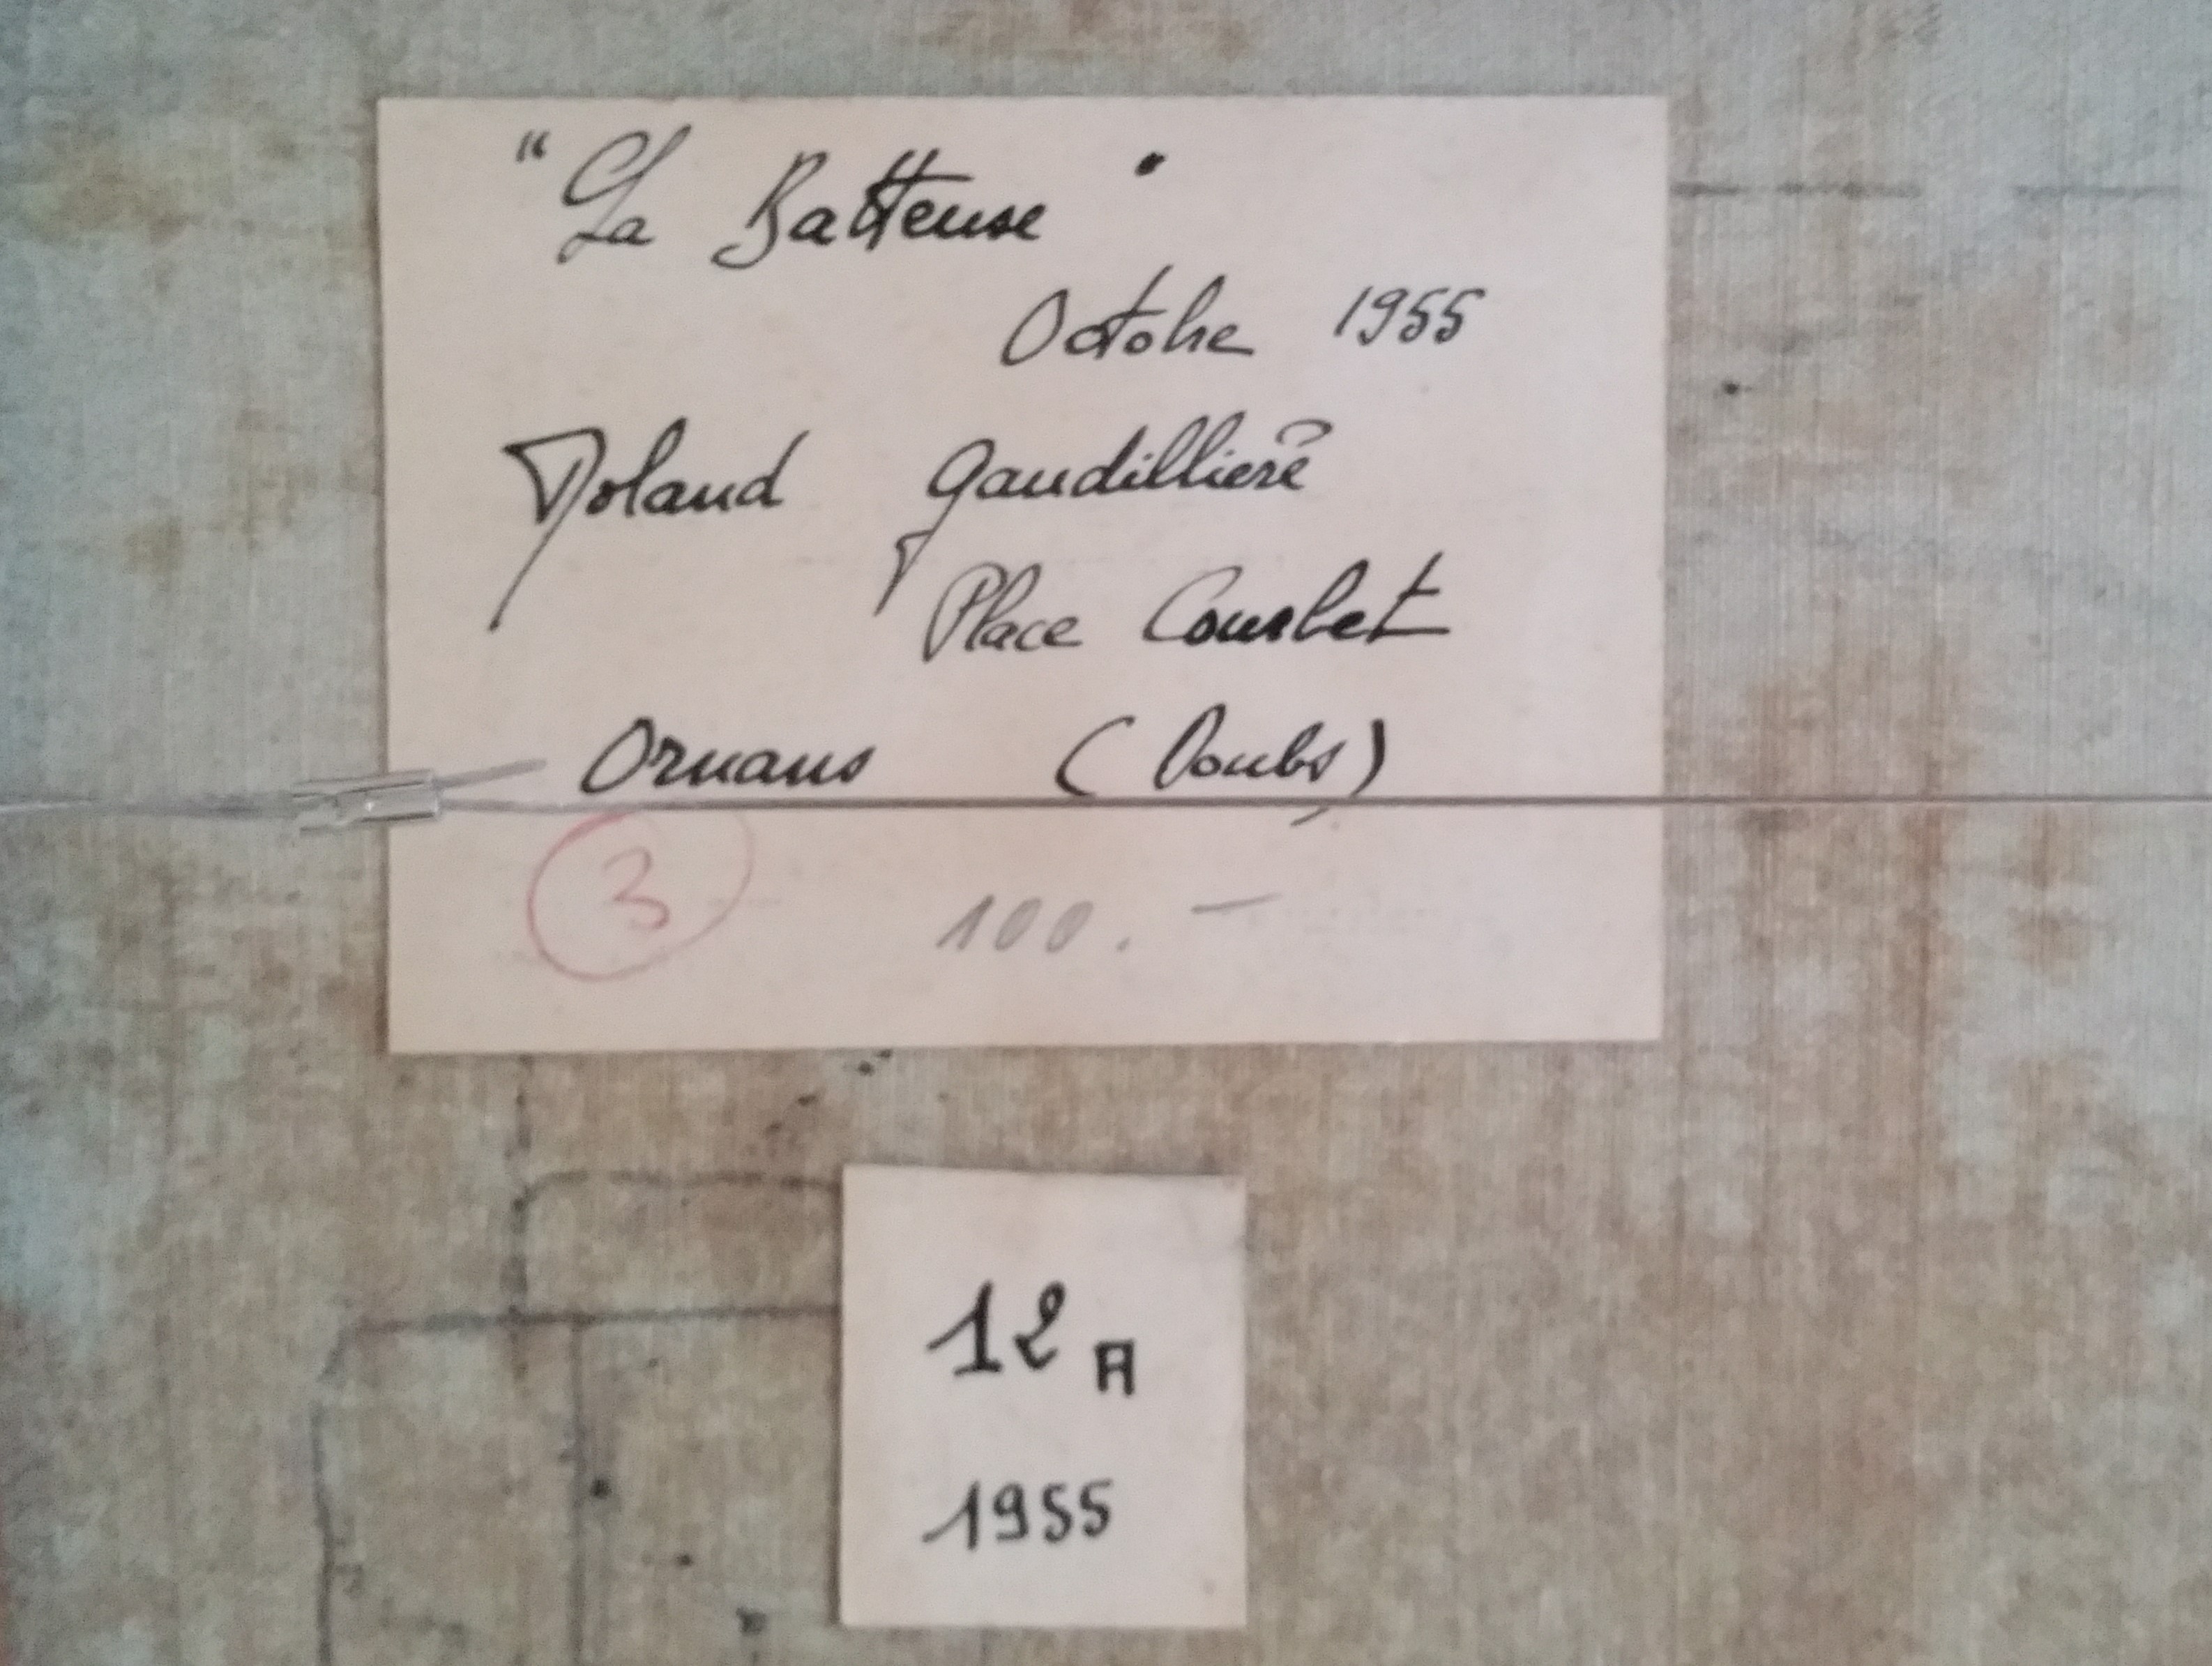 "La Batteuse"
Octobre 1955
Roland Gaudillière
Place Courbet
Ornans (Doubs)
3 100. —
12 A
1955